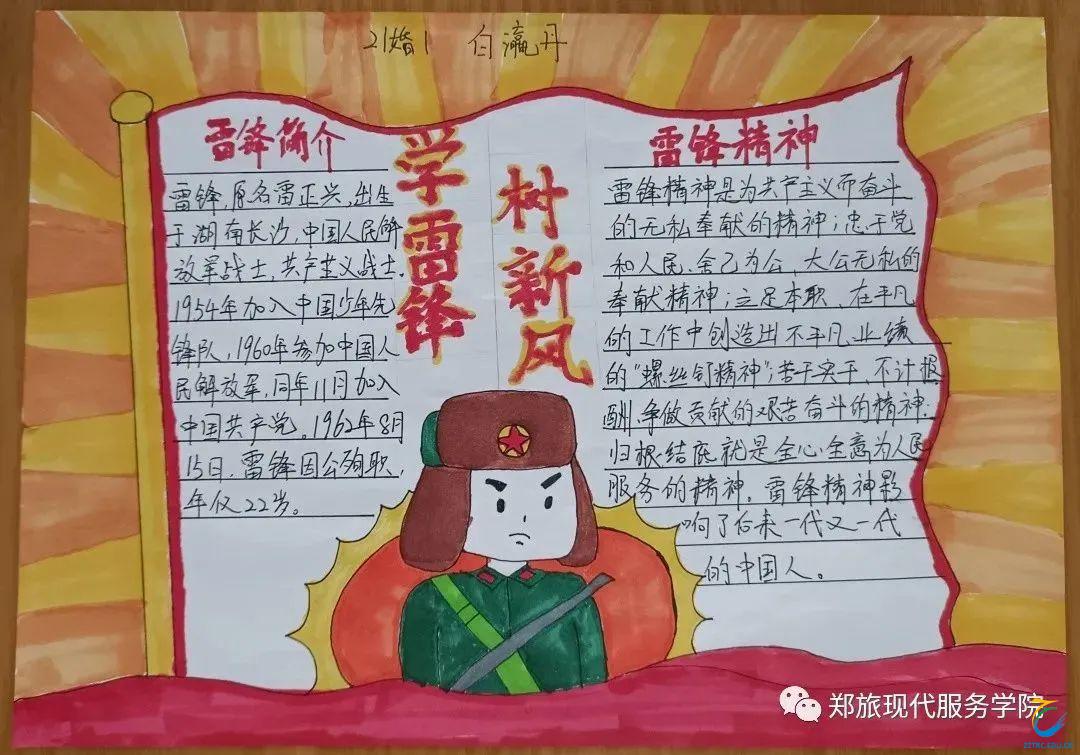 21婚1 白瀛丹
雷锋简介
雷锋,原名雷正兴,出生
于湖南长沙,中国人民解
放军战士,共产主义战士.
1954年加入中国少年先
锋队,1960年参加中国人
民解放军,同年11月加入
中国共产党。1962年8月
15日,雷锋因公殉职,
年仅22岁。
学雷锋
树新风
雷锋精神
雷锋精神是为共产主义而奋斗
的无私奉献的精神;忠于党
和人民、舍己为公、大公无私的
奉献精神;立足本职、在平凡
的工作中创造出不平凡业绩
的"螺丝钉精神";苦干实干、不计报
酬、争做贡献的艰苦奋斗的精神.
归根结底就是全心全意为人民
服务的精神。雷锋精神影
响了后来一代又一代
的中国人。
郑旅现代服务学院
ZZTRC.EDU.CN